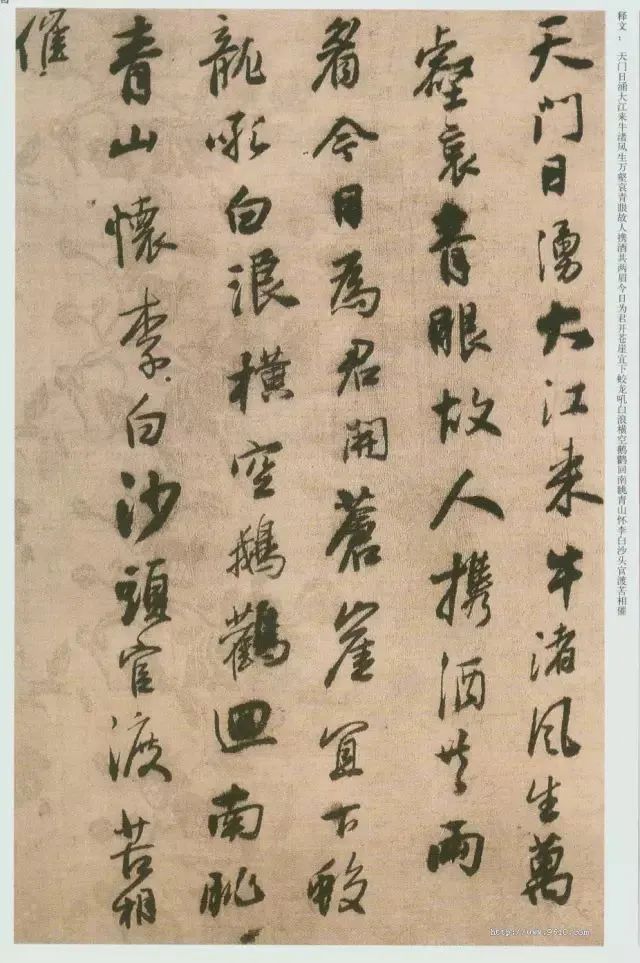 天門日湧大江来牛渚風生萬
壑哀青眼故人携酒共兩
眉今日為君開蒼崖宜下蛟
龍吼白浪橫空鵝鸛迴南眺
青山懷李白沙頭官渡苦相
催
释文：　天门日涌大江来牛渚风生万壑哀青眼故人携酒共两眉今日为君开苍崖宜下蛟龙吼白浪横空鹅鹳回南眺青山怀李白沙头官渡苦相催
http://www.9610.com